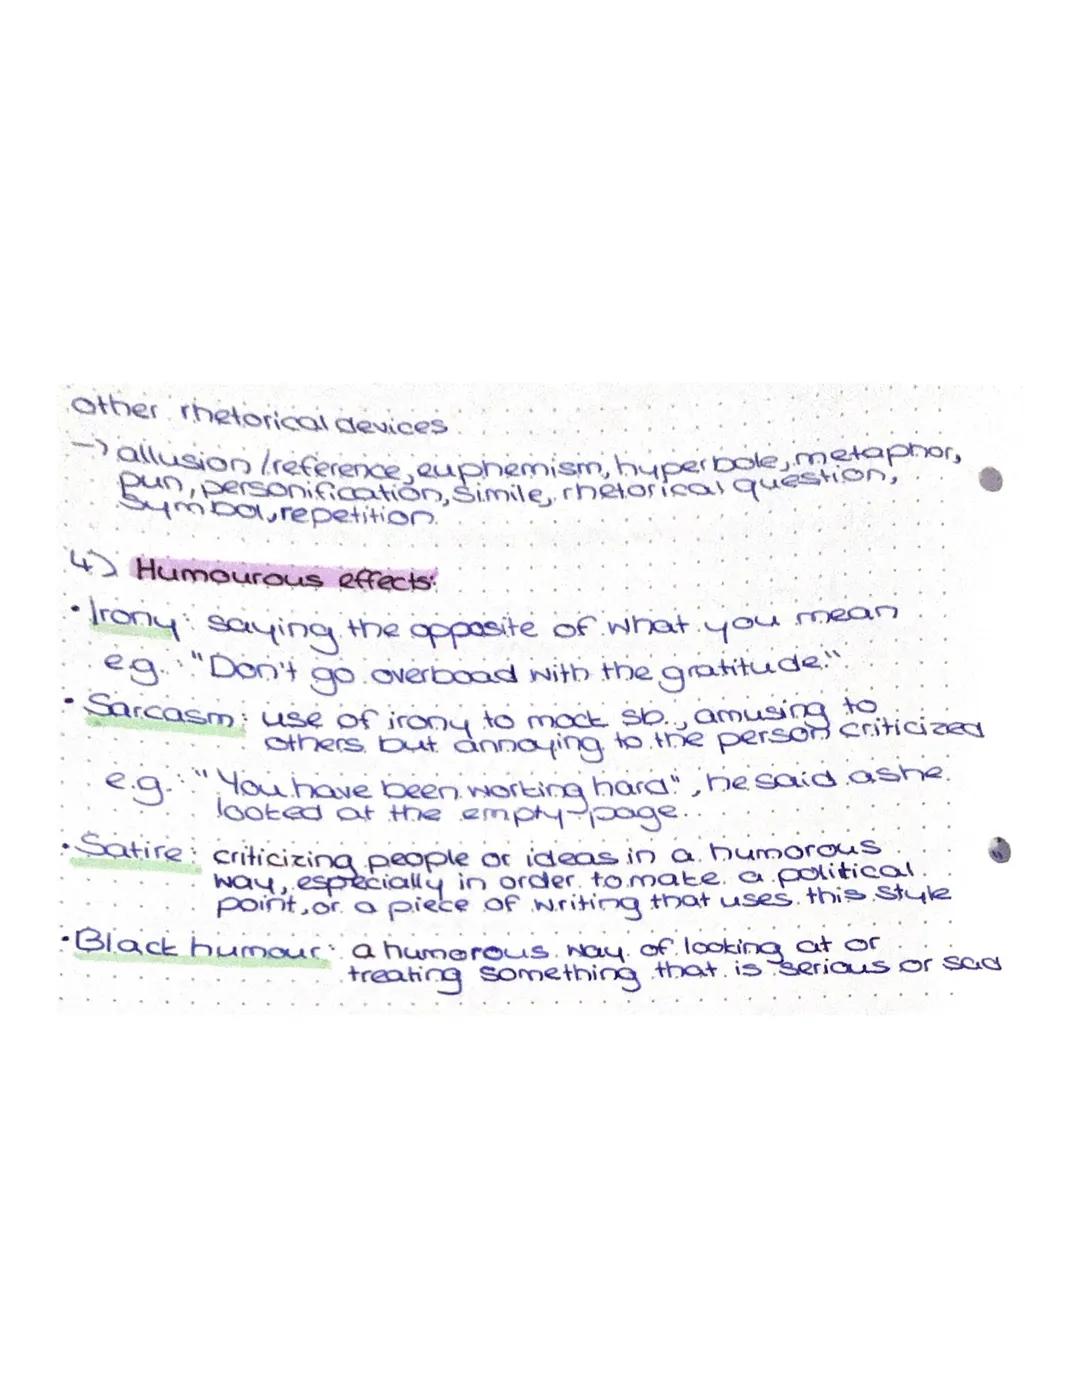 other rhetorical devices
→ allusion/reference, euphemism, hyperbole, metaphor,
pun, personification, simile, rhetorical question,
symbol, repetition
4) Humourous effects:
• Irony: saying the opposite of what you mean
e.g.: "Don't go overboad with the gratitude."
• Sarcasm: use of irony to mock sb., amusing to
others but annoying to the person criticized
e.g.: "You have been working hard", he said as he
looked at the empty page.
• Satire: criticizing people or ideas in a humorous
way, especially in order to make a political
point, or a piece of writing that uses this style
• Black humour: a humorous way of looking at or
treating something that is serious or sad